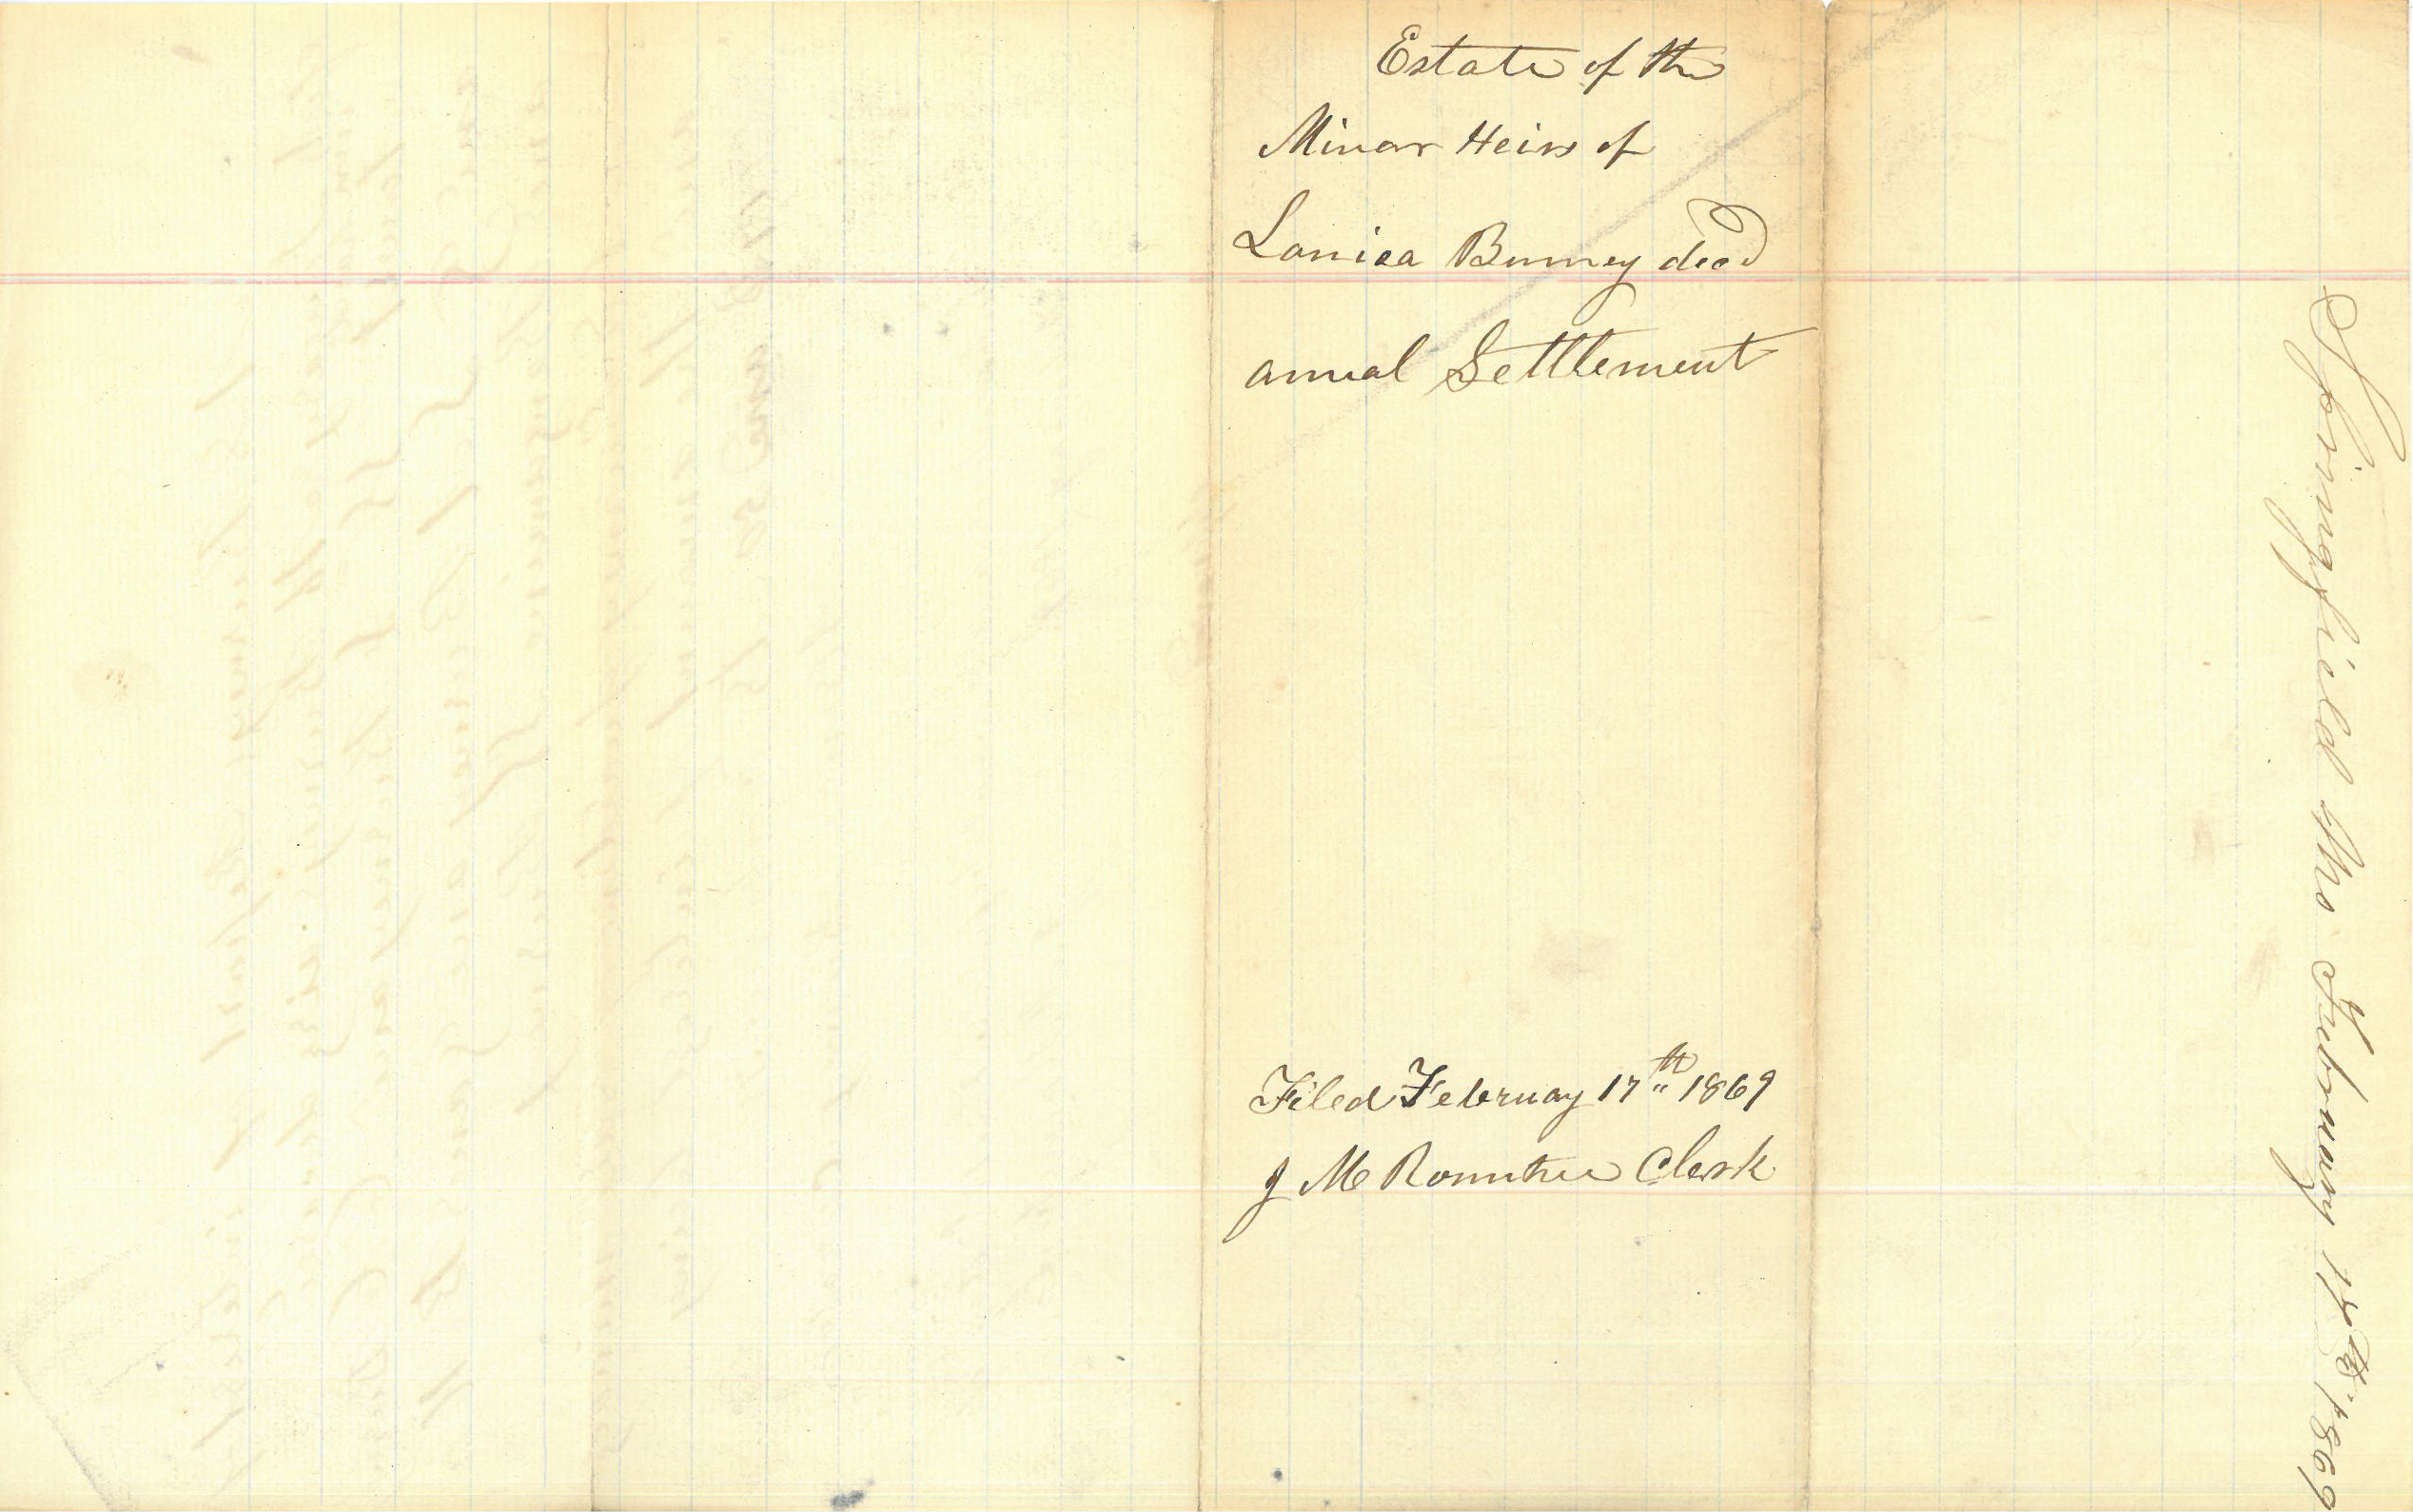 Estate of the
Minor Heirs of
Lonica Burney decd
anual Settlement
Filed February 17th 1869
J M Rountree Clerk
Springfield Mo February 17th 1869